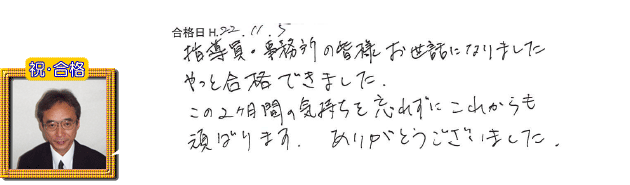 合格日 H.22.11.5
指導員・事務所の皆様お世話になりました
やっと合格できました.
この2ヶ月間の気持ちを忘れずにこれからも
頑ばります. ありがとうございました.
祝・合格